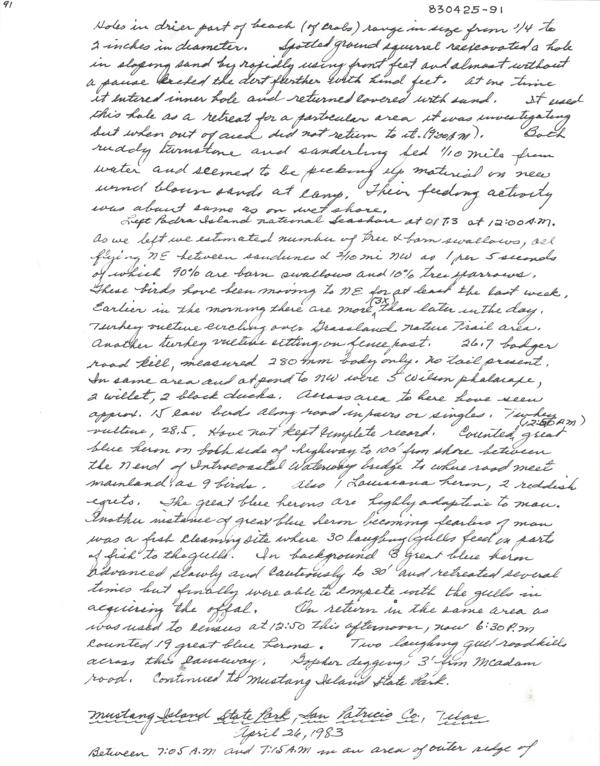 91
830425-91
Holes in drier part of beach (of crabs) range in size from 1/4 to
2 inches in diameter. Spotted ground squirrel reexcavated a hole
in sloping sand by rapidly using front feet and almost without
a pause kicked the dirt further with hind feet. At one time
it entered inner hole and returned covered with sand. It used
this hole as a retreat for a particular area it was investigating
but when out of area did not return to it. (9:00 AM). Both
ruddy turnstone and sanderling fed 1/10 mile from
water and seemed to be picking up material on new
wind blown sands at camp. Their feeding activity
was about same as on wet shore.
Left Padre Island National Seashore at 017.3 at 12:00 A.M.
As we left we estimated number of tree & barn swallows, all
flying NE between sandunes & 2/10 mi NW as 1 per 5 seconds
of which 90% are barn swallows and 10% tree sparrows.
These birds have been moving to NE for at least the last week.
Earlier in the morning there are more (3X) than later in the day.
Turkey vulture circling over Grassland Nature Trail area.
Another turkey vulture sitting on fence post. 26.7 badger
road kill, measured 280 mm body only. No tail present.
In same area and at pond to NW were 5 Wilson phalarope,
2 willet, 2 black ducks. Across area to here have seen
approx. 15 cow bird along road in pairs or singles. Turkey
vulture, 28.5. Have not kept complete record. Counted (12:50 AM) great
blue heron on both side of highway to 100' from shore between
the N end of Intracoastal Waterway bridge to where road meet
mainland as 9 birds. Also 1 Louisiana heron, 2 reddish
egrets. The great blue herons are highly adaptive to man.
Another instance of great blue heron becoming fearless of man
was a fish cleaning site where 30 laughing gulls feed on parts
of fish to the gulls. In background 3 great blue heron
advanced slowly and cautiously to 30' and retreated several
times but finally were able to compete with the gulls in
acquiring the offal. On return in the same area as
was used to census at 12:50 this afternoon, now 6:30 P.M
counted 19 great blue herons. Two laughing gull roadkills
across this causeway. Gopher diggings 3' from McAdam
road. Continued to Mustang Island State Park.
Mustang Island State Park, San Patricio Co., Texas
April 26, 1983
Between 7:05 A.M and 7:15 A.M in an area of outer ridge of